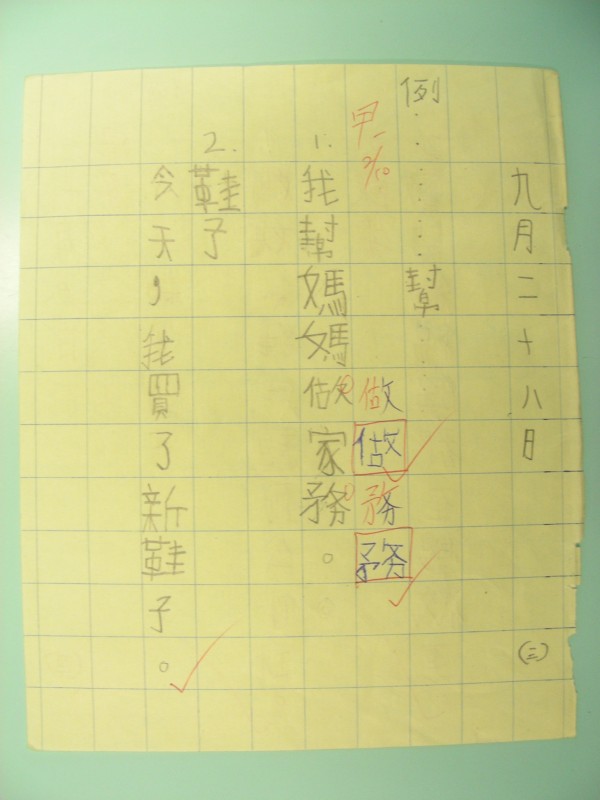 九月二十八日(三)
例......幫......
甲-
做做務務
1.我幫媽媽做家務。
2.鞋子
今天,我買了新鞋子。